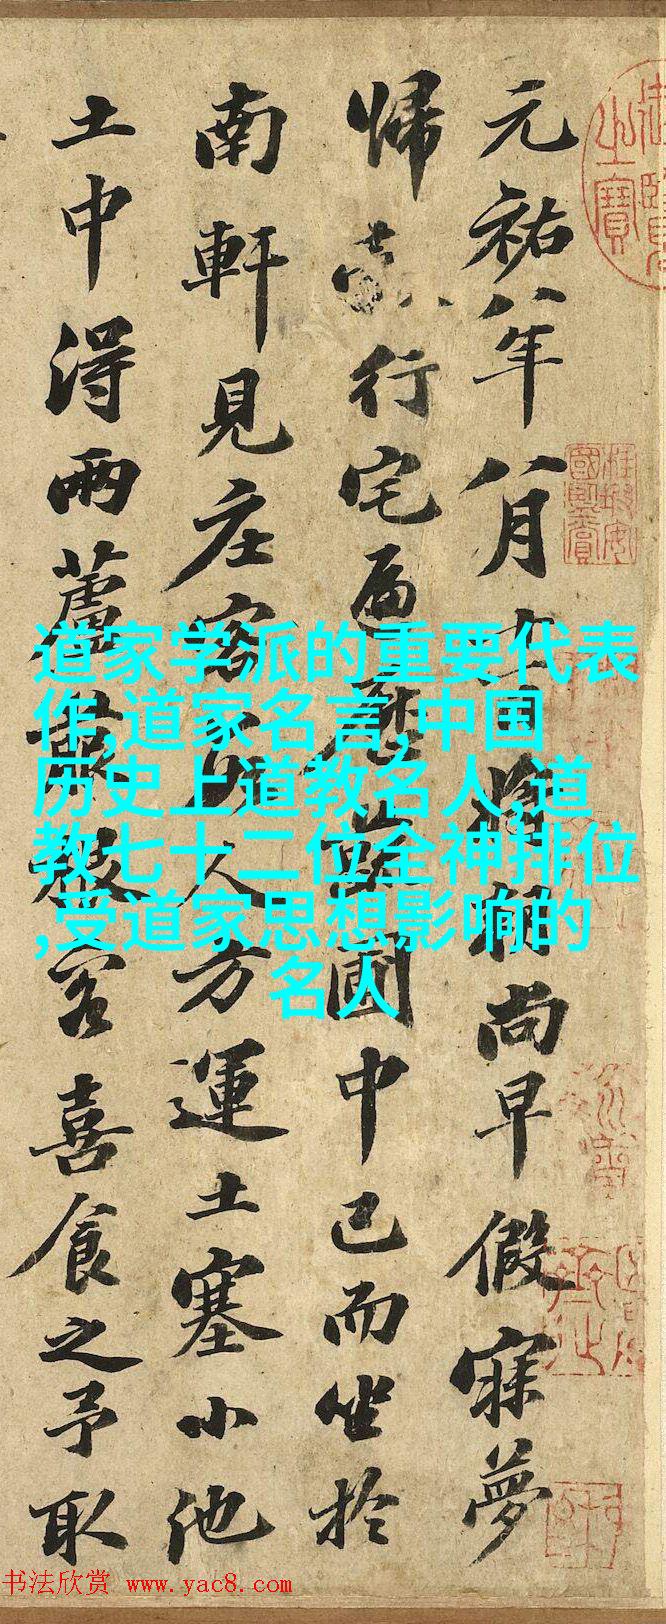 元祐八年八月十一日將朝尚早假寐夢
歸行宅遍歷蔬圃中已而坐於
南軒見庄客數人方運土塞小池
土中得兩蘆菔根客喜食之予取
道家学派的重要代表
作,道家名言,中国
历史上道教名人,道
教七十二位全神排位
,受道家思想影响的
名人
书法欣赏 www.yac8.com